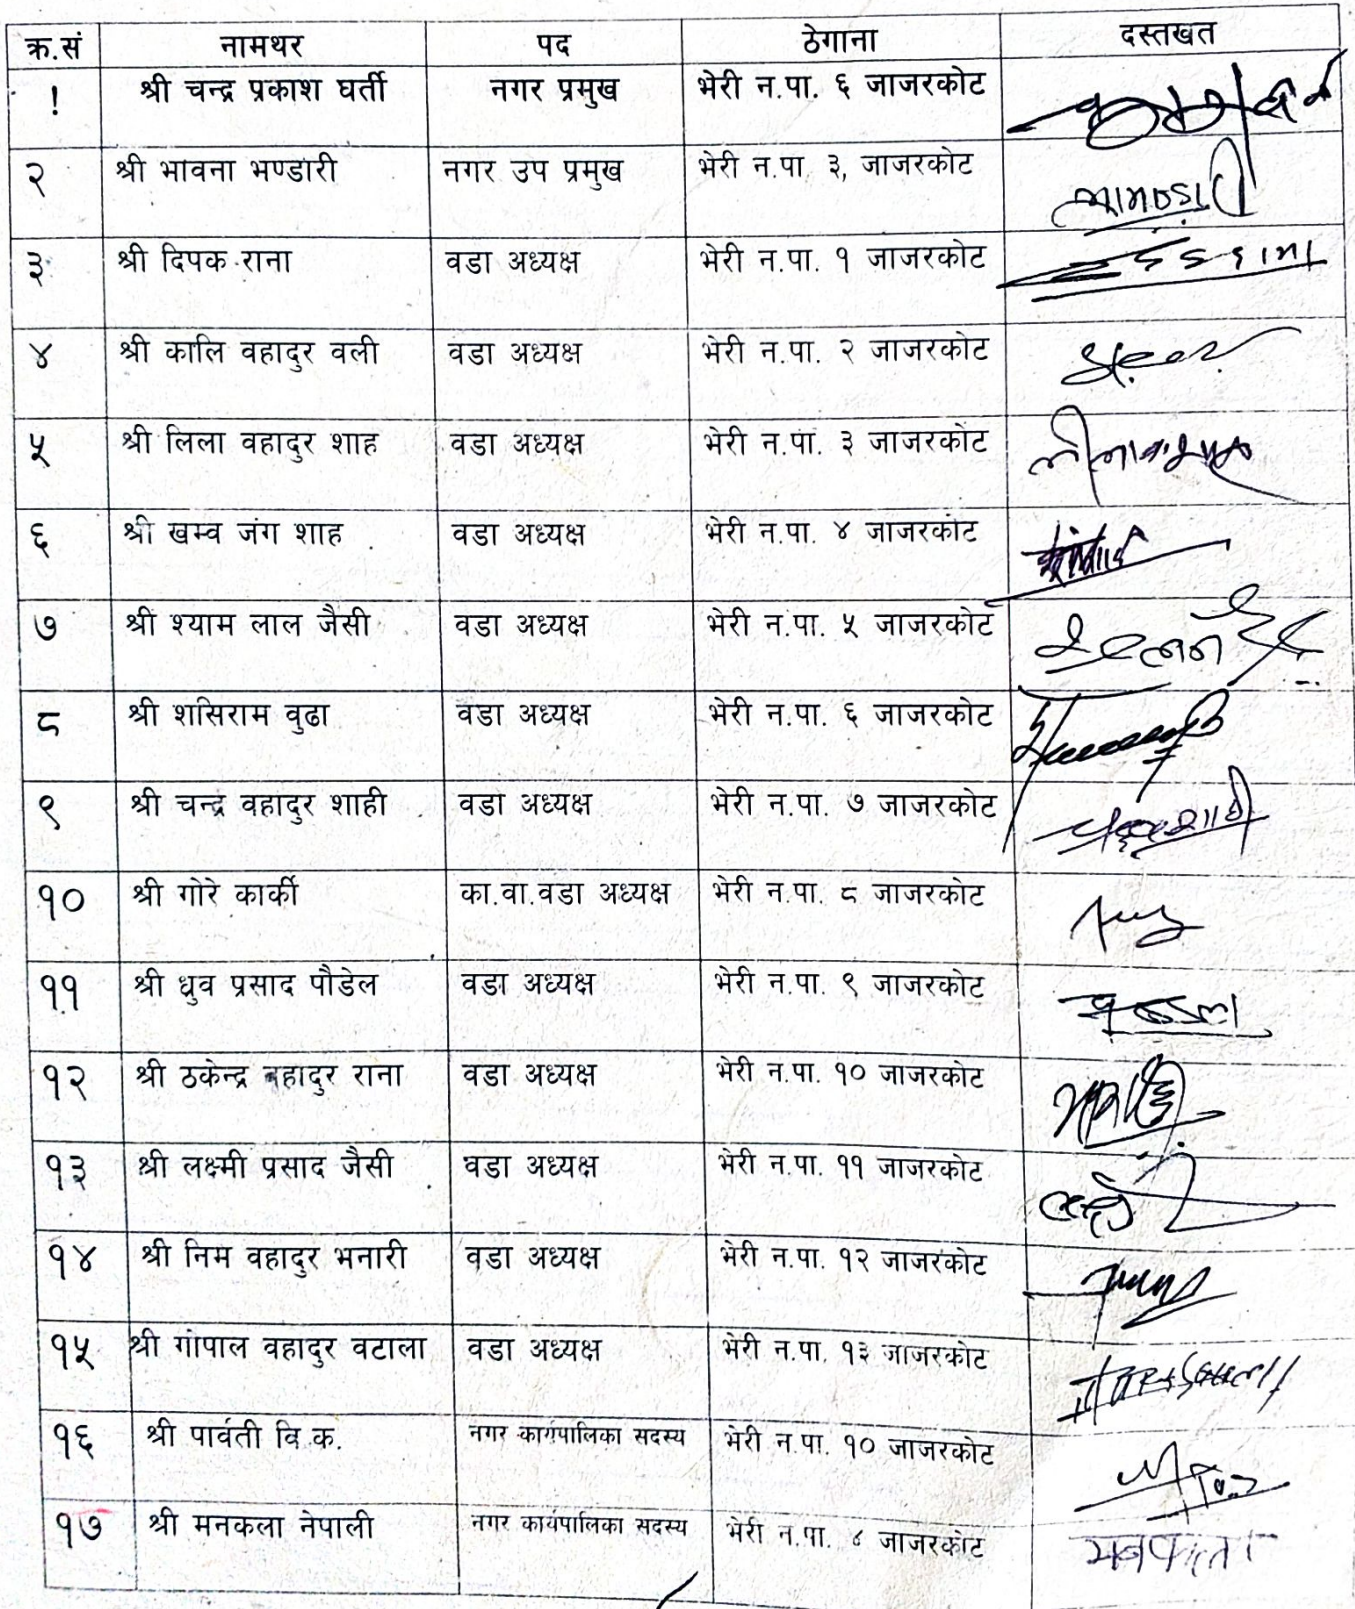 क्र.सं नामथर पद ठेगाना दस्तखत
! श्री चन्द्र प्रकाश घर्ती नगर प्रमुख भेरी न.पा. ६ जाजरकोट
२ श्री भावना भण्डारी नगर उप प्रमुख भेरी न.पा. ३, जाजरकोट
३ श्री दिपक राना वडा अध्यक्ष भेरी न.पा. १ जाजरकोट
४ श्री कालि वहादुर वली वडा अध्यक्ष भेरी न.पा. २ जाजरकोट
५ श्री लिला वहादुर शाह वडा अध्यक्ष भेरी न.पा. ३ जाजरकोट
६ श्री खम्व जंग शाह वडा अध्यक्ष भेरी न.पा. ४ जाजरकोट
७ श्री श्याम लाल जैसी वडा अध्यक्ष भेरी न.पा. ५ जाजरकोट
८ श्री शसिराम वुढा वडा अध्यक्ष भेरी न.पा. ६ जाजरकोट
९ श्री चन्द्र वहादुर शाही वडा अध्यक्ष भेरी न.पा. ७ जाजरकोट
१० श्री गोरे कार्की का.वा.वडा अध्यक्ष भेरी न.पा. ८ जाजरकोट
११ श्री धुव प्रसाद पौडेल वडा अध्यक्ष भेरी न.पा. ९ जाजरकोट
१२ श्री ठकेन्द्र वहादुर राना वडा अध्यक्ष भेरी न.पा. १० जाजरकोट
१३ श्री लक्ष्मी प्रसाद जैसी वडा अध्यक्ष भेरी न.पा. ११ जाजरकोट
१४ श्री निम वहादुर भनारी वडा अध्यक्ष भेरी न.पा. १२ जाजरकोट
१५ श्री गोपाल वहादुर वटाला वडा अध्यक्ष भेरी न.पा. १३ जाजरकोट
१६ श्री पार्वती वि.क. नगर कार्यपालिका सदस्य भेरी न.पा. १० जाजरकोट
१७ श्री मनकला नेपाली नगर कार्यपालिका सदस्य भेरी न.पा. ४ जाजरकोट मनकला